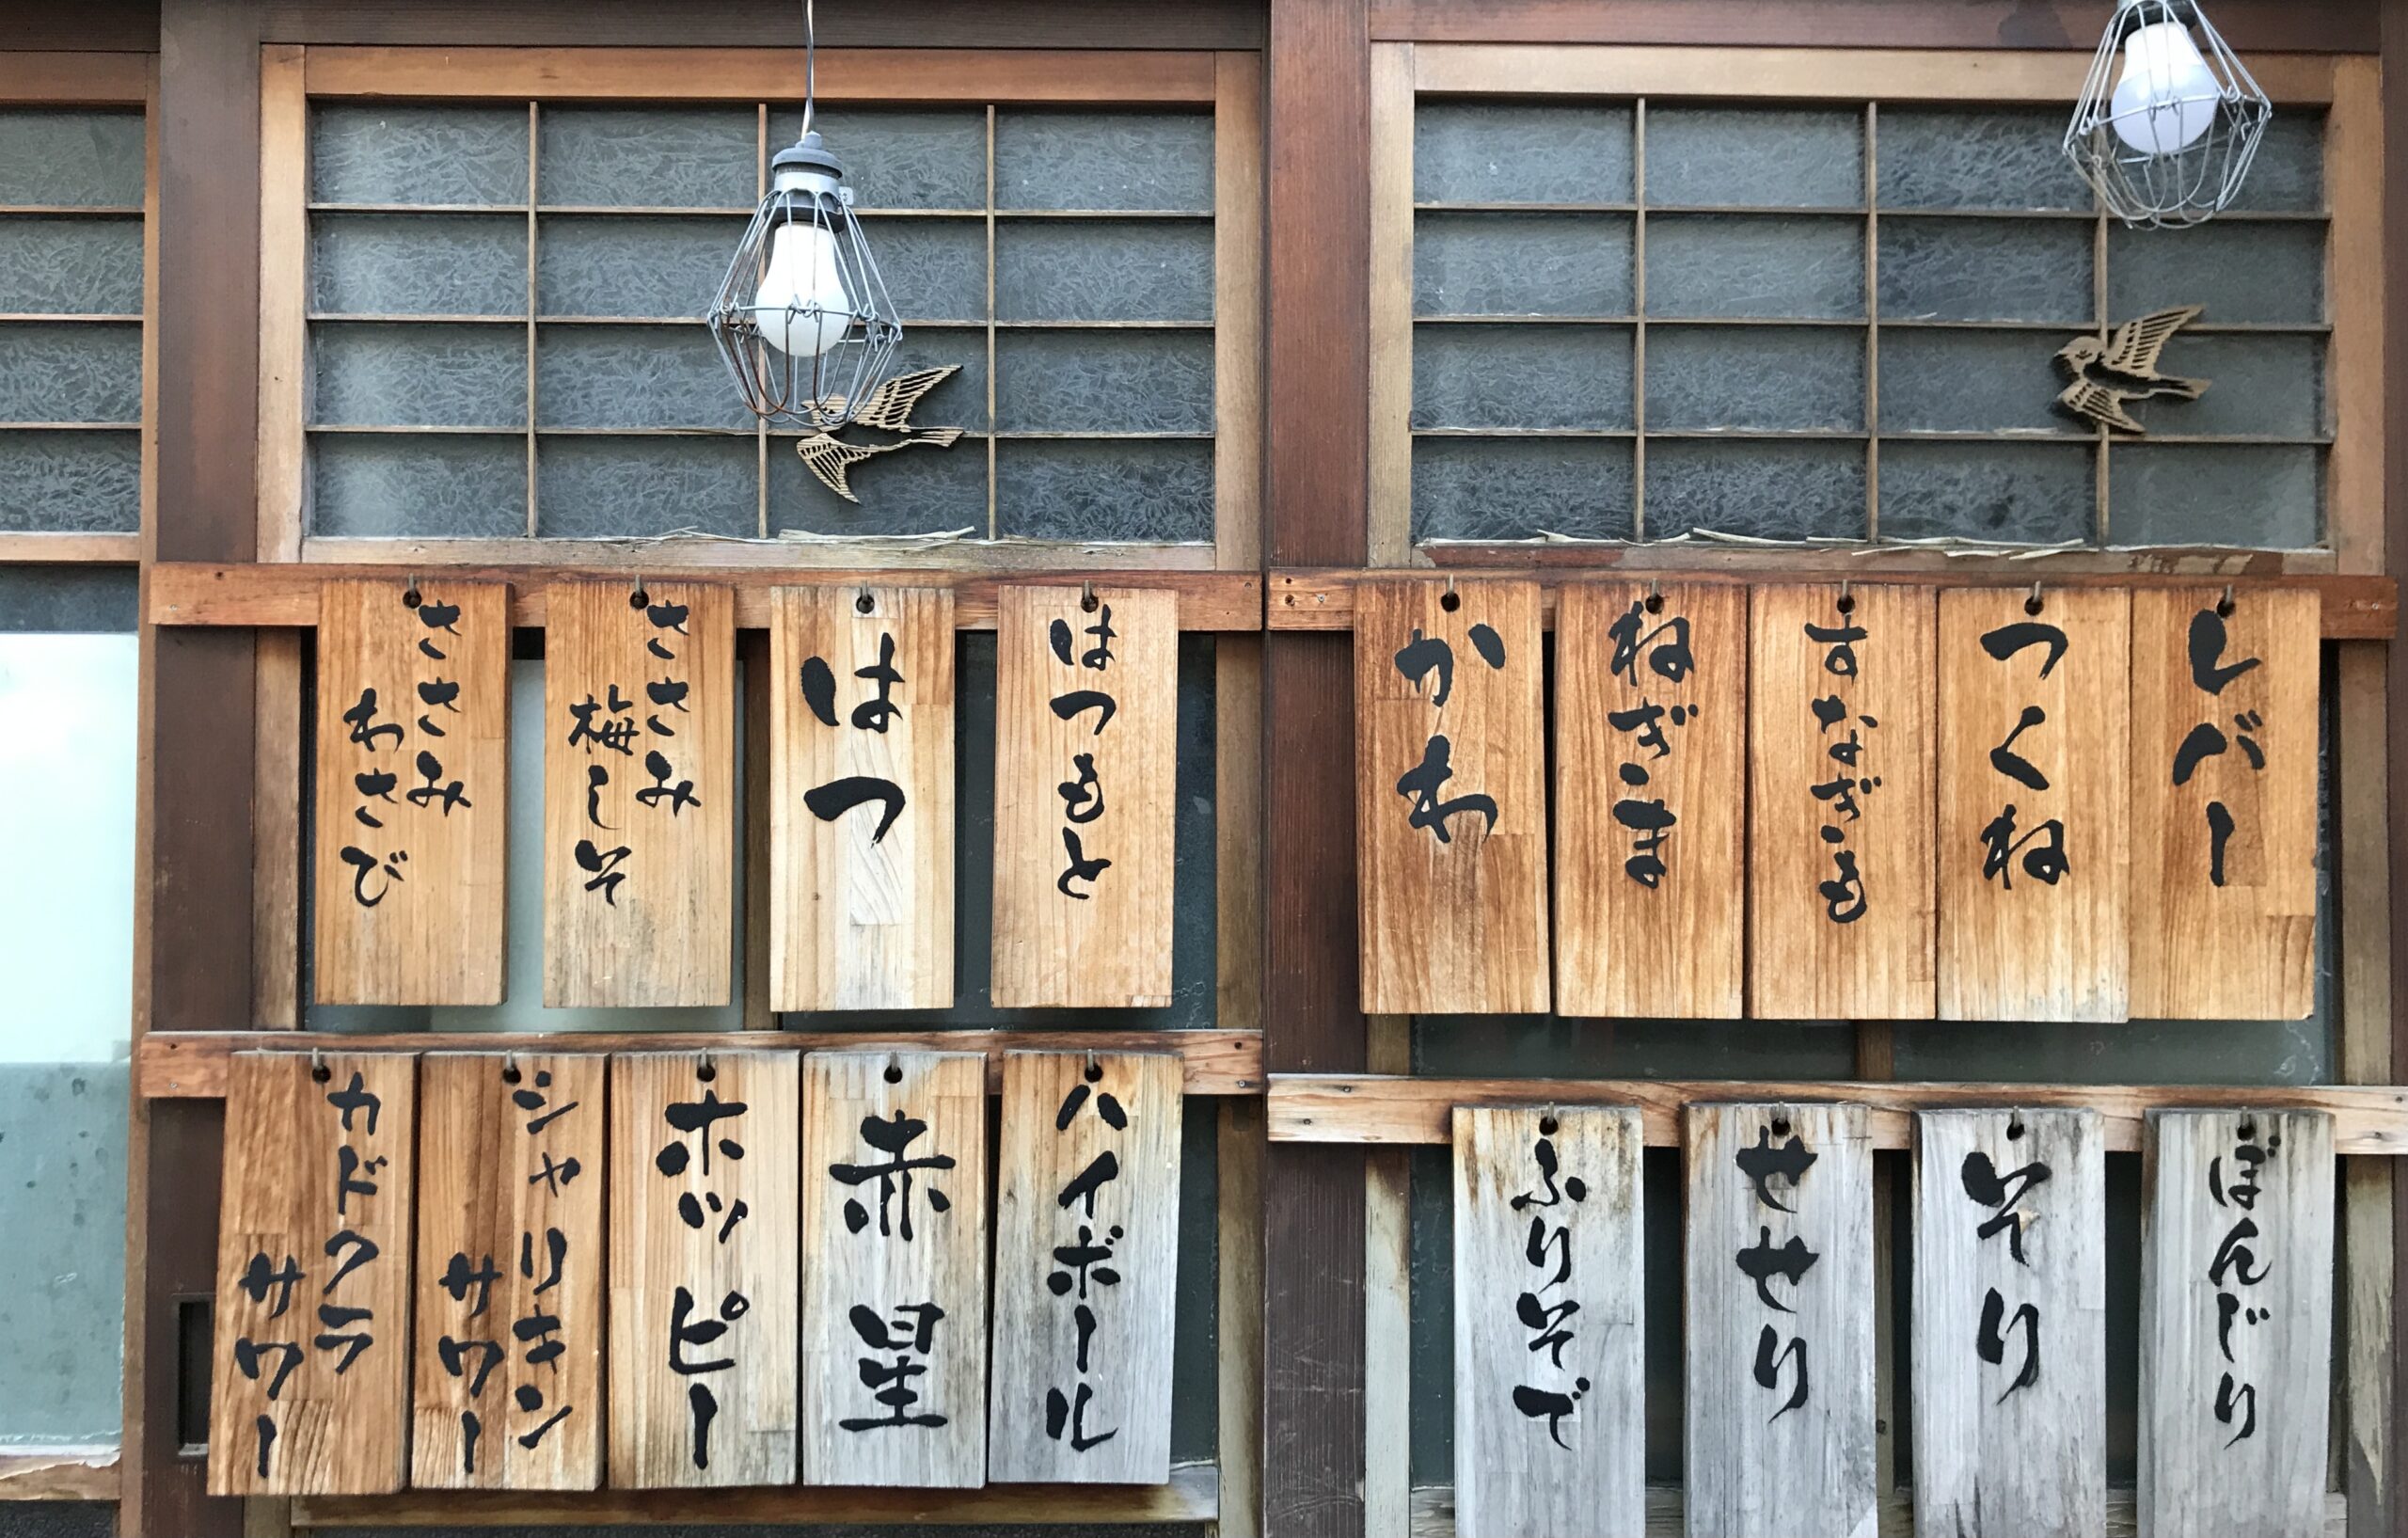 レバー
つくね
すなぎも
ねぎま
かわ
はつもと
はつ
ささみ
梅しそ
ささみ
わさび
ぼんじり
そり
せせり
ふりそで
ハイボール
赤星
ホッピー
シャリキン
サワー
カドクラ
サワー